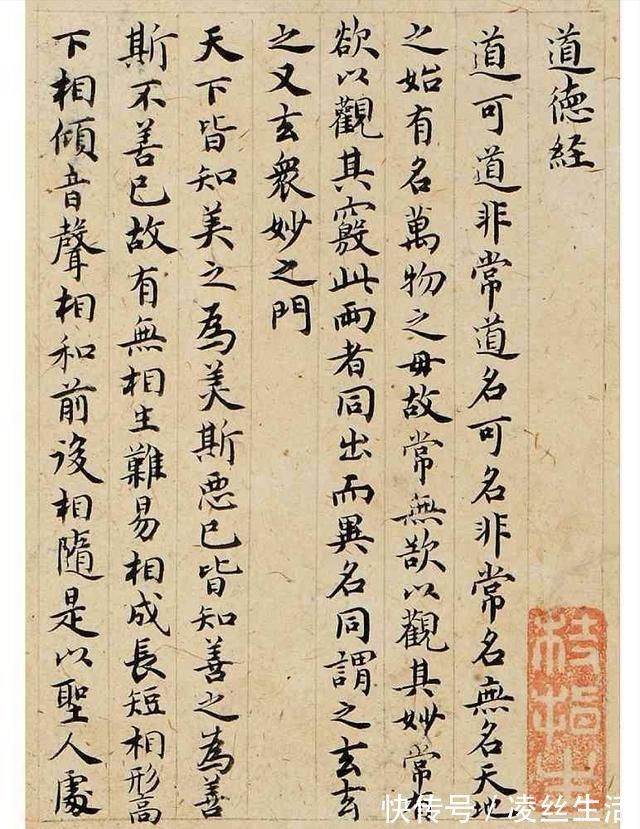 道德経
道可道非常道名可名非常名無名天地
之始有名萬物之毋故常無欲以觀其妙常有
欲以觀其竅此兩者同出而異名同謂之玄玄
之又玄衆妙之門
天下皆知美之為美斯恶已皆知善之為善
斯不善已故有無相生難易相成長短相形高
下相傾音聲相和前後相隨是以聖人處
快传号/凌丝生活